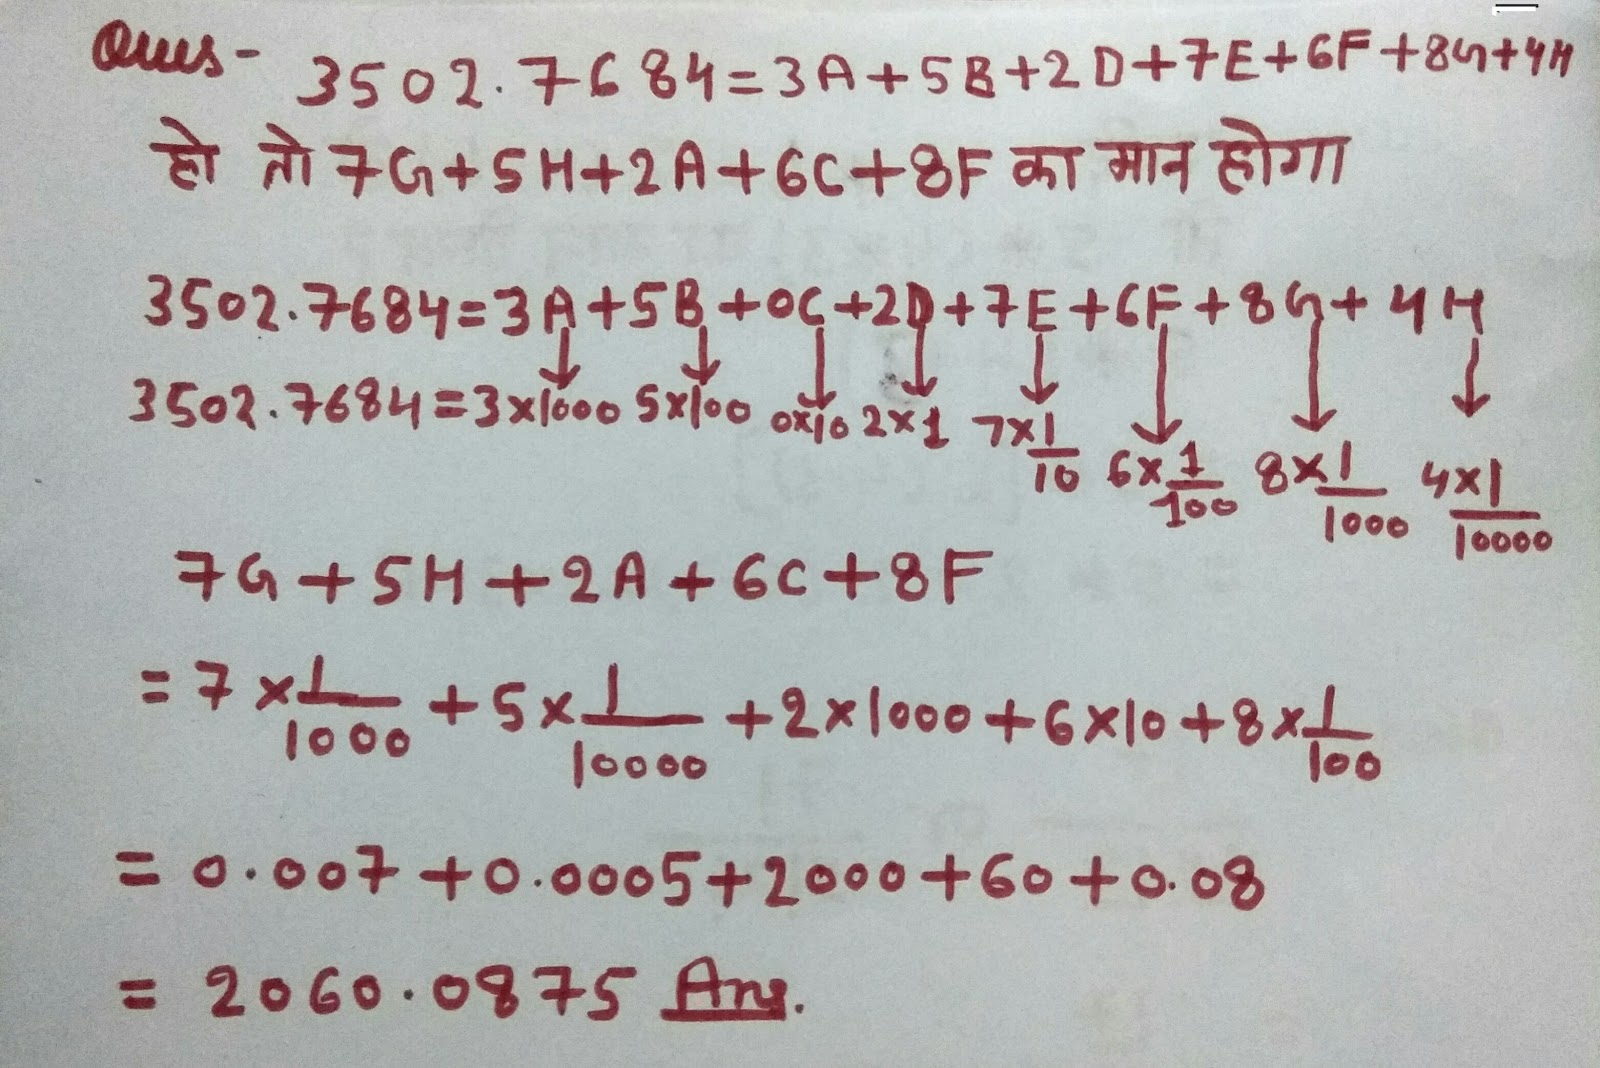 Ques- 3502.7684=3A+5B+2D+7E+6F+8G+4H
हो तो 7G+5H+2A+6C+8F का मान होगा
3502.7684=3A+5B+0C+2D+7E+6F+8G+4H
3502.7684=3×1000 5×100 0×10 2×1 7×1/10 6×1/100 8×1/1000 4×1/10000
7G+5H+2A+6C+8F
=7×1/1000+5×1/10000+2×1000+6×10+8×1/100
=0.007+0.0005+2000+60+0.08
=2060.0875 Ans.